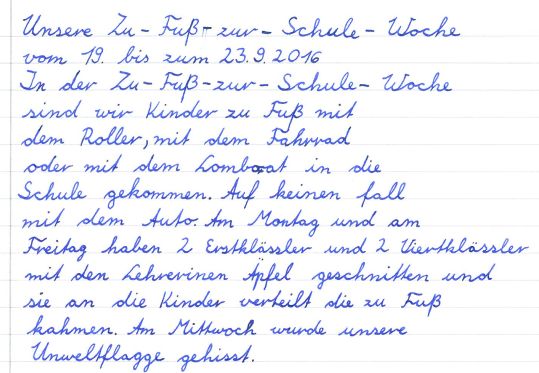 Unsere Zu-Fuß-zur-Schule-Woche
vom 19. bis zum 23.9.2016
In der Zu-Fuß-zur-Schule-Woche
sind wir Kinder zu Fuß mit
dem Roller, mit dem Fahrrad
oder mit dem Lomboat in die
Schule gekommen. Auf keinen fall
mit dem Auto. Am Montag und am
Freitag haben 2 Erstklässler und 2 Viertklässler
mit den Lehrerinen Äpfel geschnitten und
sie an die Kinder verteilt die zu Fuß
kahmen. Am Mittwoch wurde unsere
Unweltflagge gehisst.